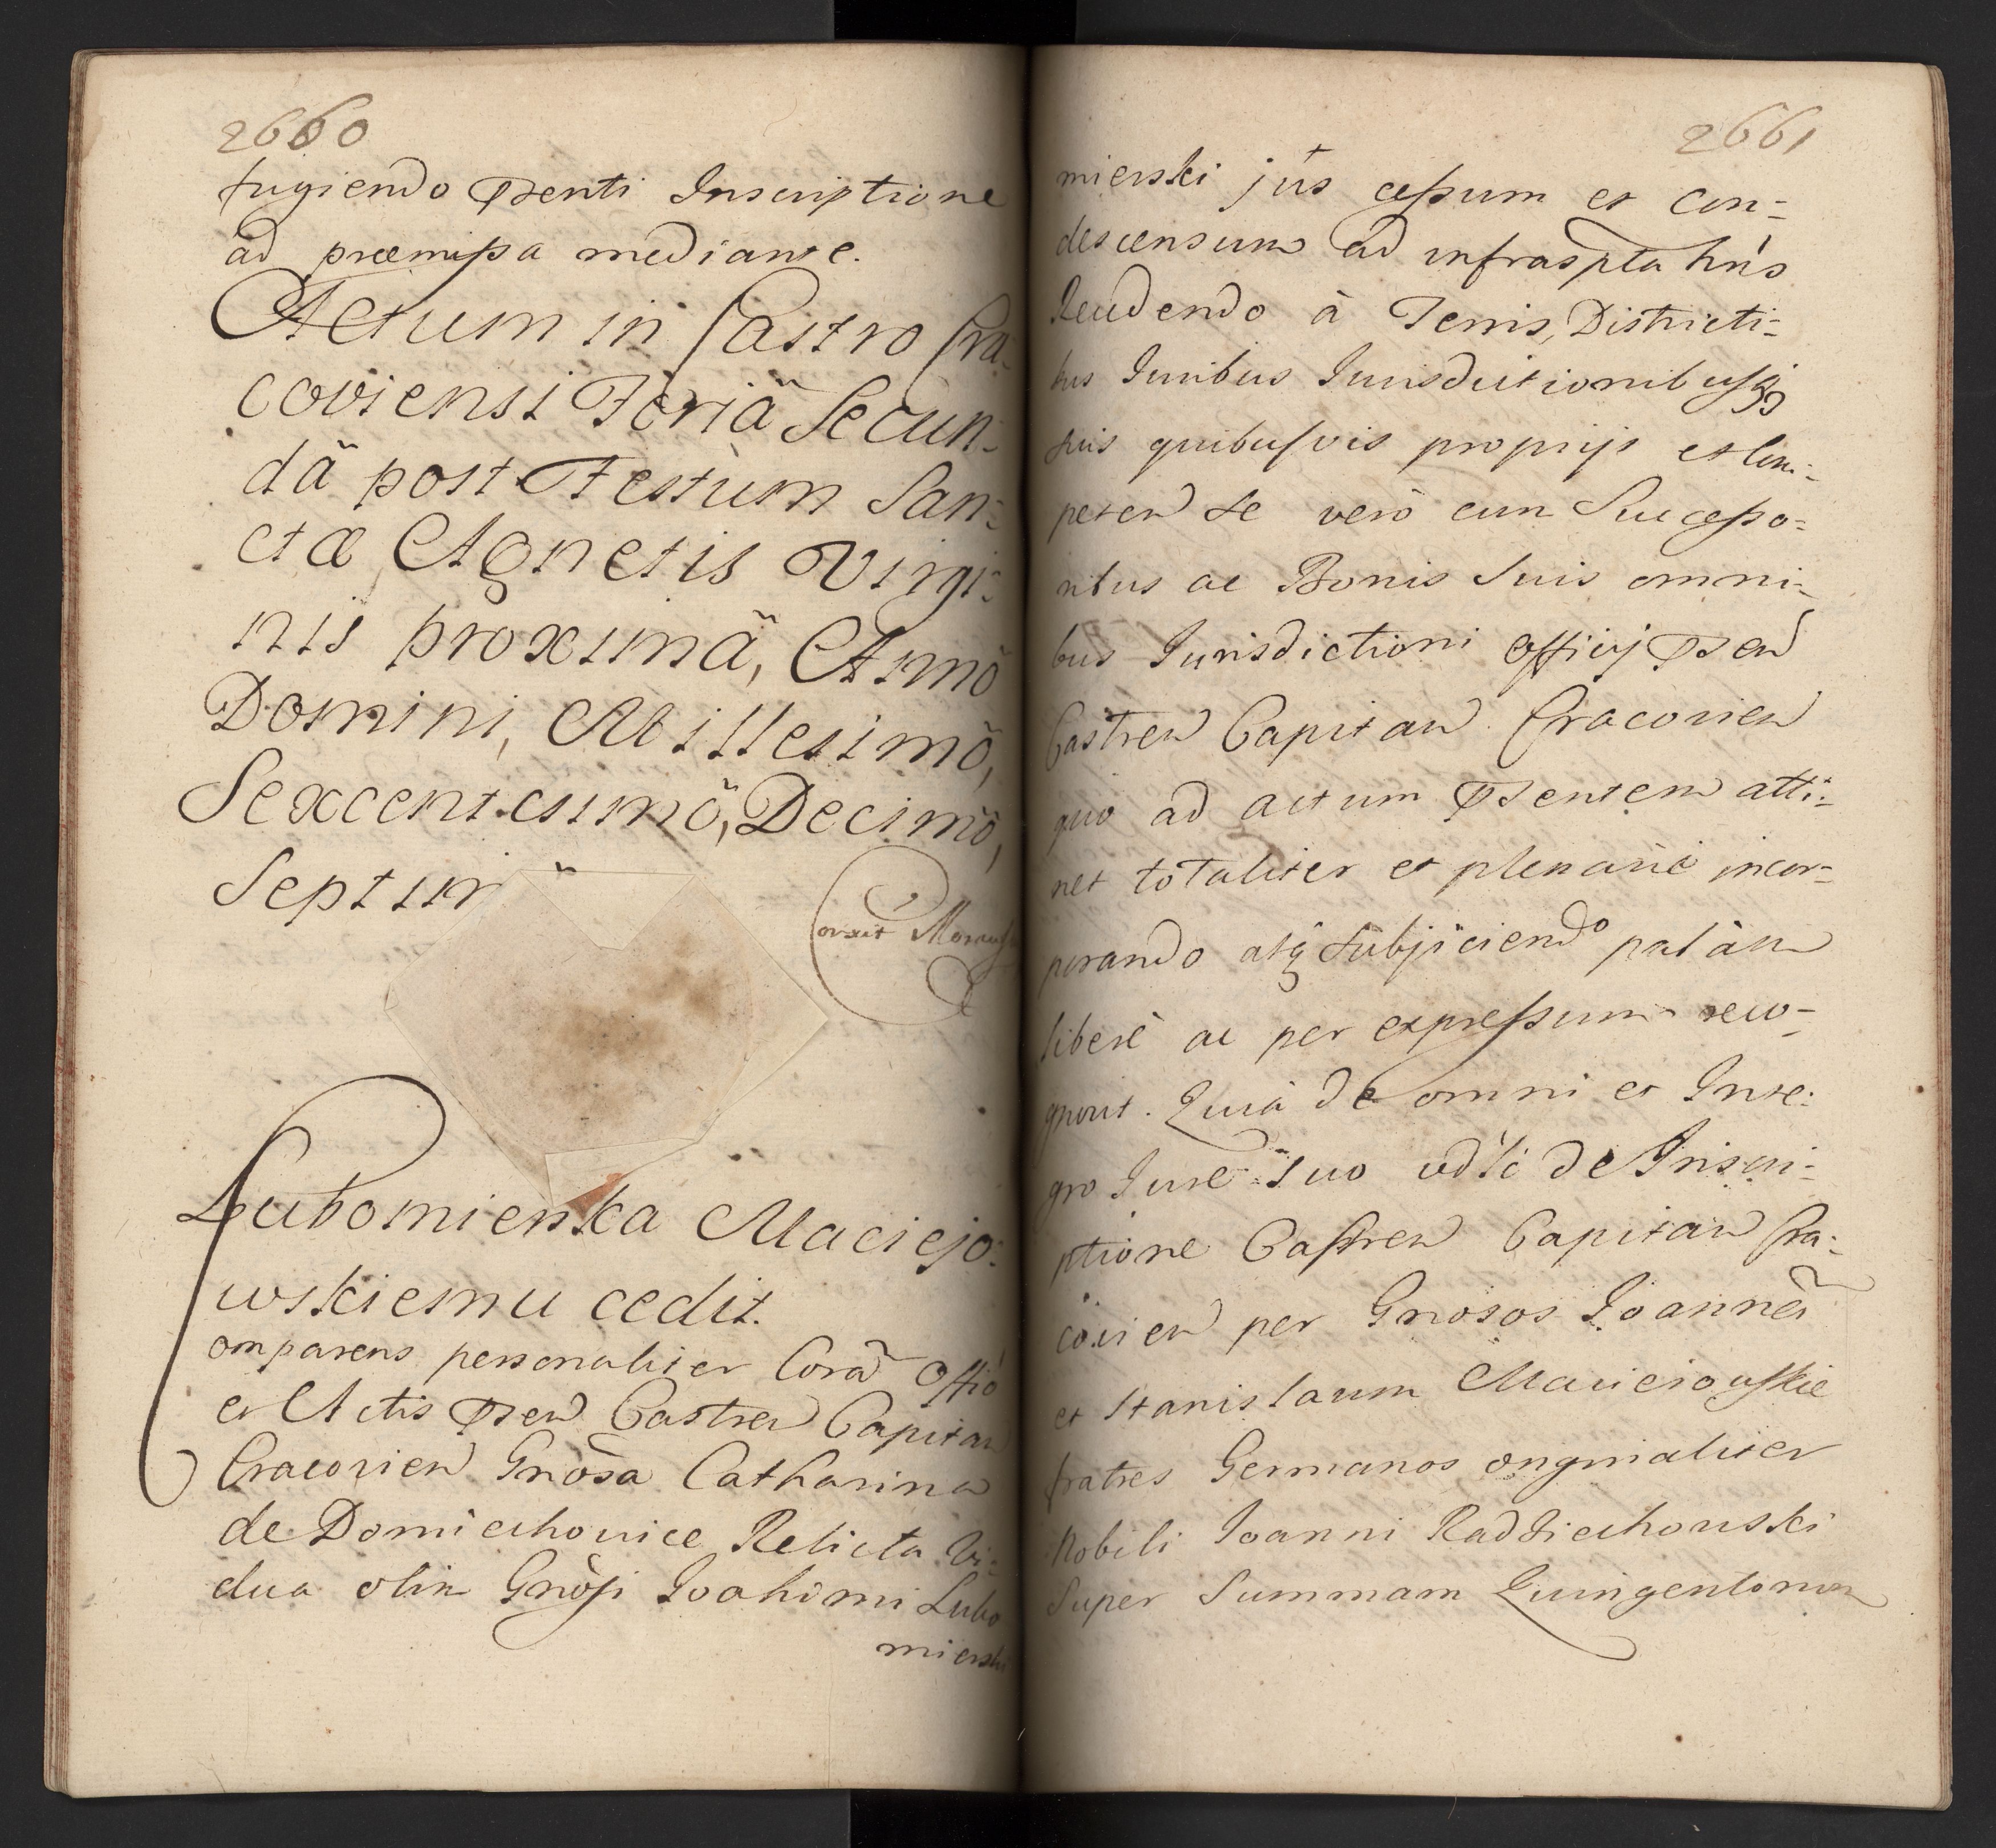 2660
fugiendo pñsenti Inscriptione
ad præmissa mediante.
Actum in Castro Cra-
coviensi Feriâ Secun-
dâ post Festum San-
ctæ Agnetis Virgi-
nis proximâ, Annô
Domini, Millesimô,
Sexcentesimô, Decimô,
Septim
Lubomierska Maciejo-
wskiemu cedit.
Comparens personaliter Corã Offiö
et Actis pñsen Castren Capitan
Cracovien Gnosa Catharina
de Domiechowice Relicta Vi-
dua olim Gnosi Joahimi Lubo
mierski
2661
mierski jus cessum et Con-
descensum ad infraspta hñs
Recedendo à Terris, Districti-
bus Iuribus Iurisdictionibusqȝ
suis quibusvis proprijs et Com-
peten se verò cum Successo-
ribus ac Bonis Suis omni-
bus Iurisdictioni officij pñsen
Castren Capitan Cracovien
quo ad actum pñsentem atti-
net totaliter et plenariè incor-
porando atqȝ subjiciendo palàm
liberè ac per expressum reco-
gnovit. Quia de omni et Inte-
gro Iure suo vdlt de Inscri-
ptione Castren Capitan Cra-
covien per Gnosos Joannẽ
et Stanislaum Macieiouskie
fratres Germanos originaliter
Nobili Joanni Radziechouski
Super Summam Quingentorum